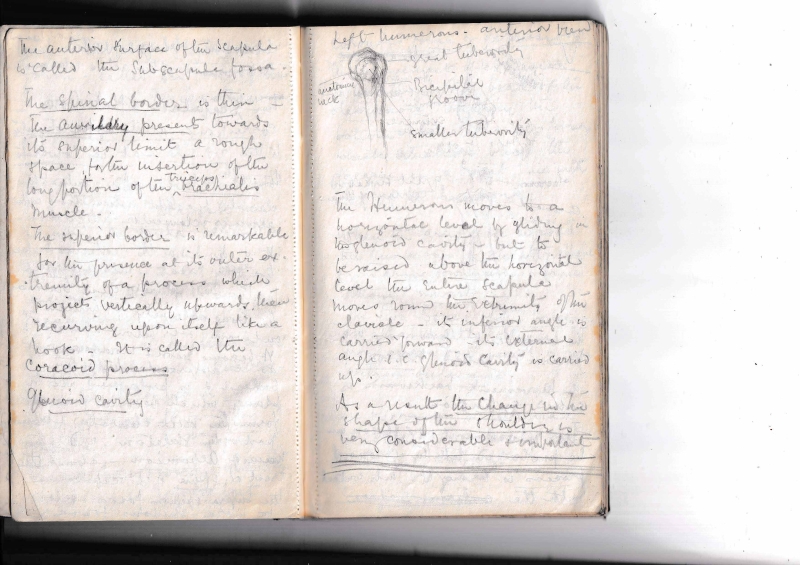 The anterior surface of the Scapula
is called the Subscapula fossa.
The spinal border is thin –
The auxilary presents towards
its superior limit a rough
space for the insertion of the
long portion of the triceps brachialis
muscle.
The superior border is remarkable
for the presence at its outer ex-
tremity of a process which
projects vertically upwards then
recurving upon itself like a
hook – It is called the
coracoid process
Glenoid cavity
Left humerous – anterior view
great tuberosity
anatomical neck
Bicipital
groove
smaller tuberosity
The Humerous moves to a
horizontal level by gliding in
the glenoid cavity – but to
be raised above the horizontal
level the entire scapula
moves round the extremity of the
clavicle – its inferior angle is
carried forward – its external
angle i.e. glenoid cavity is carried
up.
As a result the change in the
shape of the shoulder is
very considerable & important